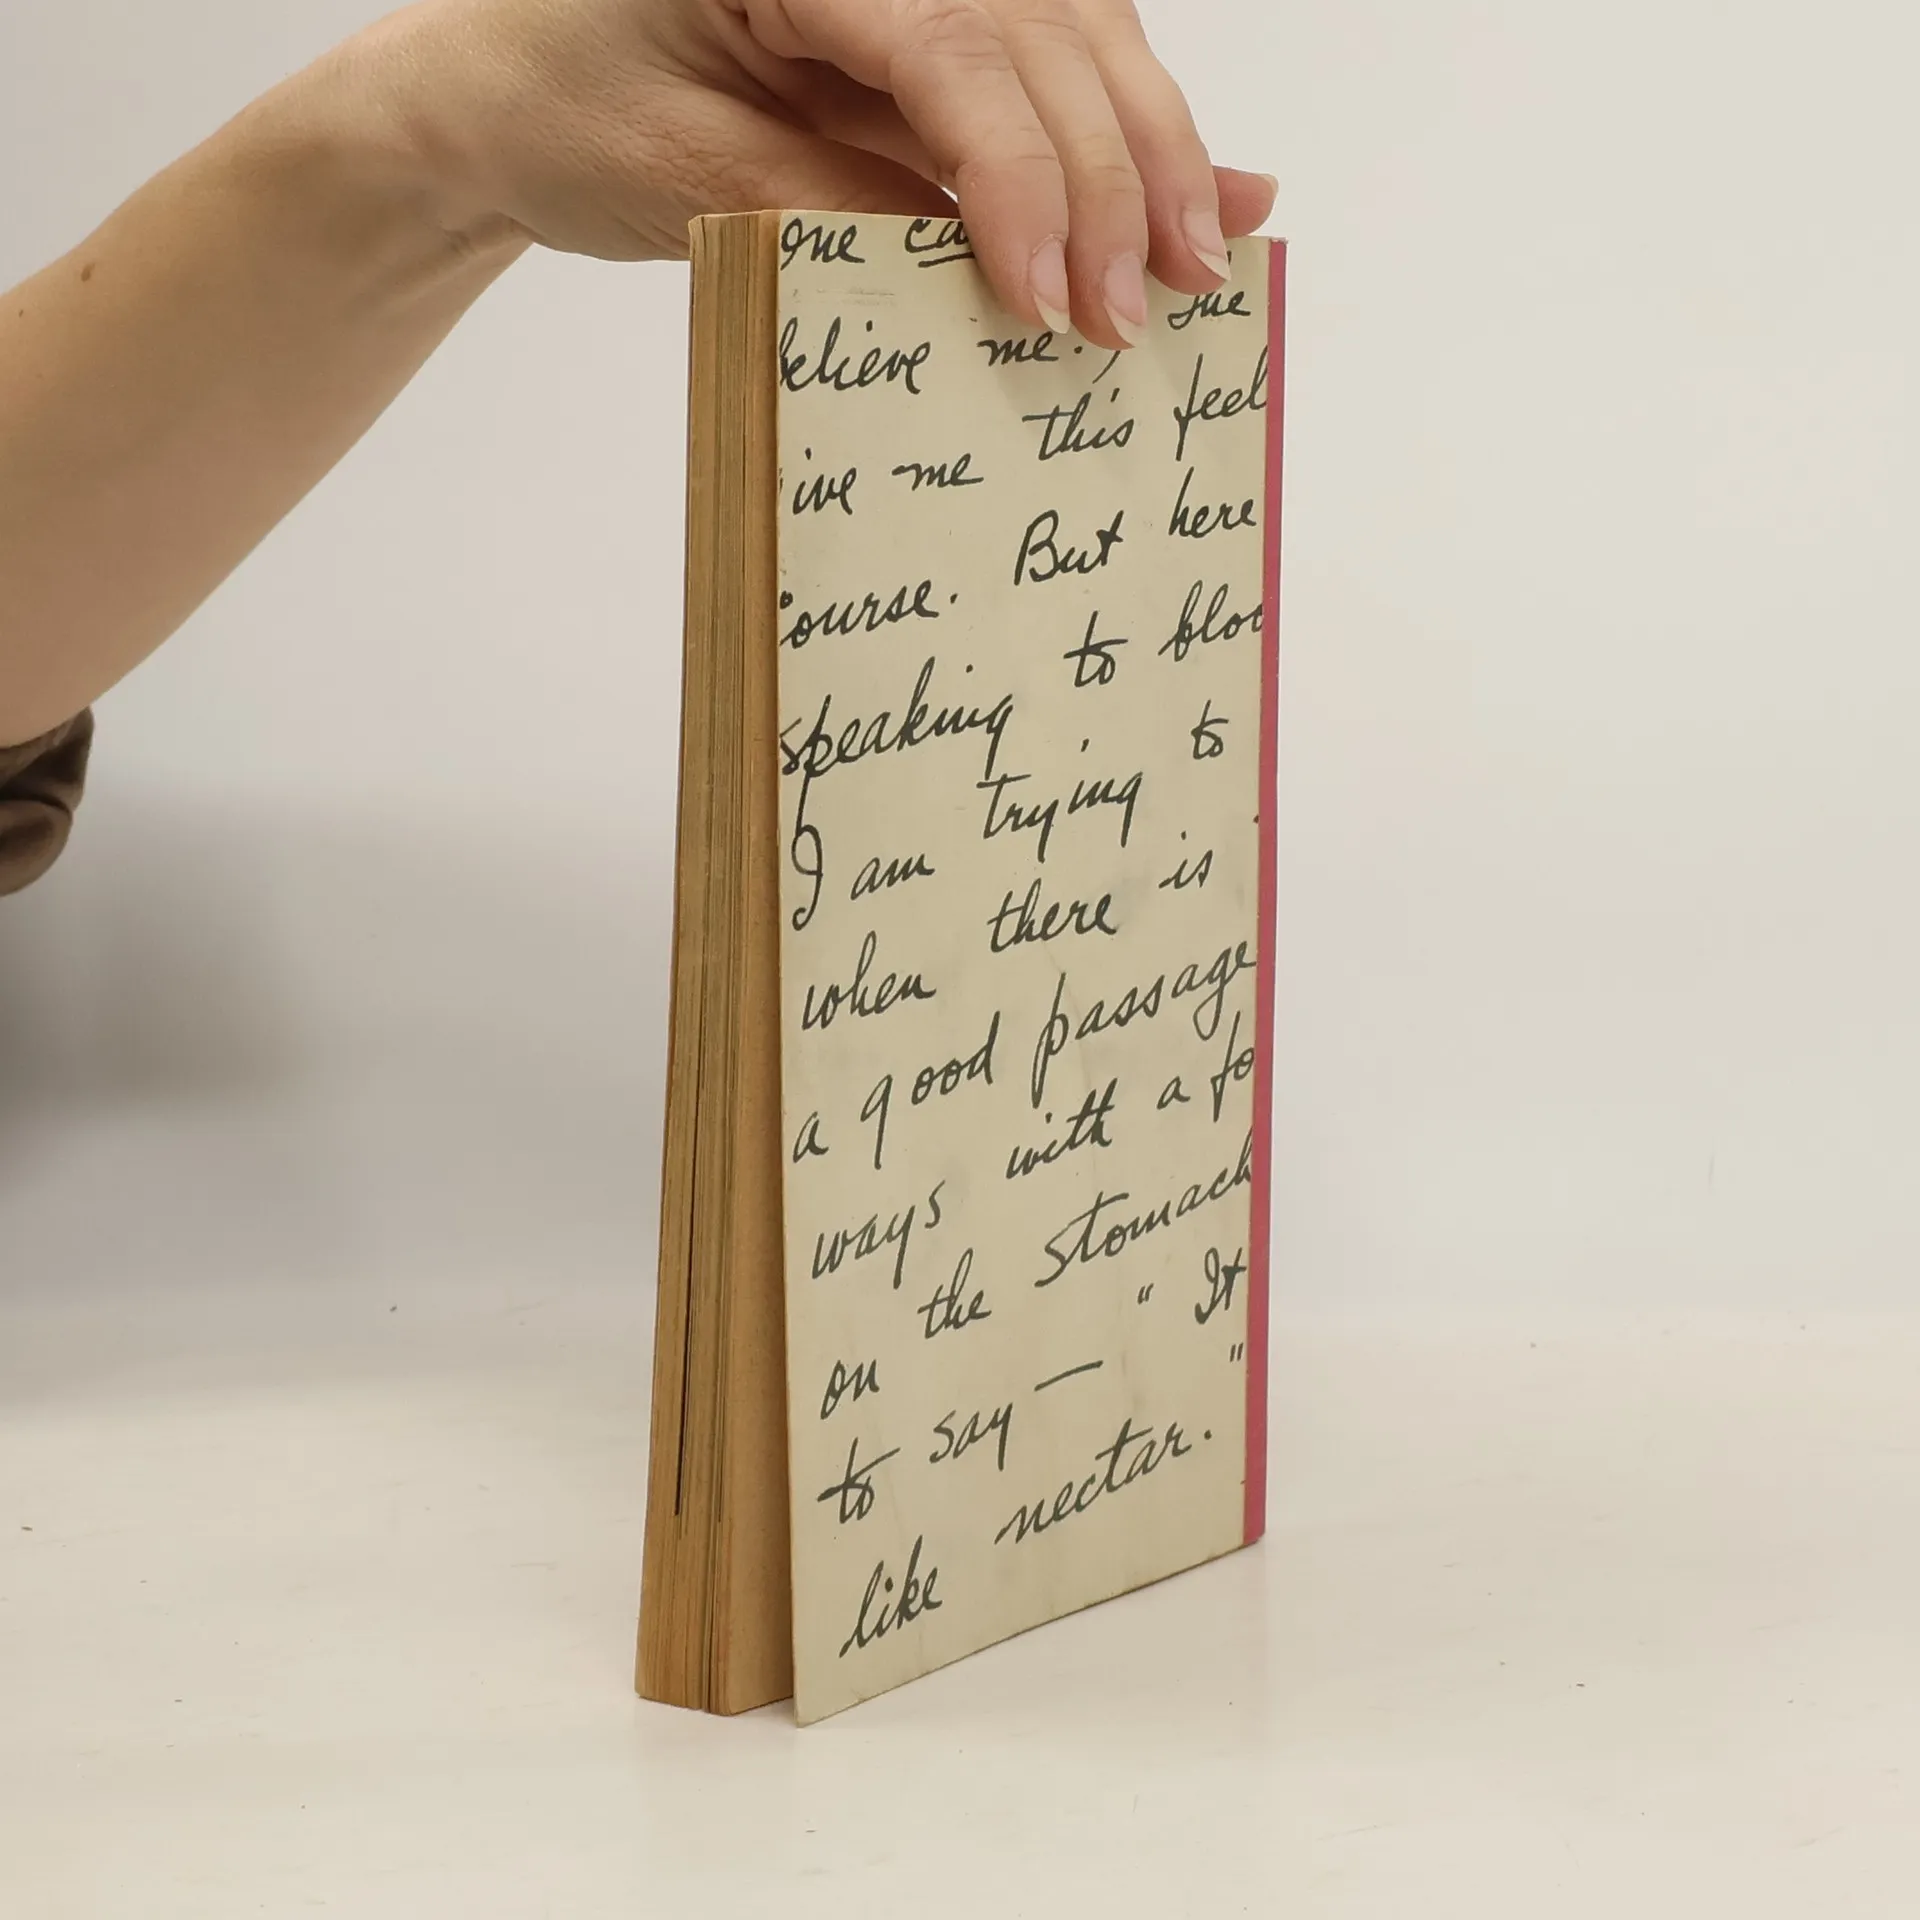 One ca
believe me.)
ive me this feel
ourse. But here
speaking to bloo
I am trying to
when there is
a good passage
ways with a fo
on the stomach
to say — " It
like nectar. "